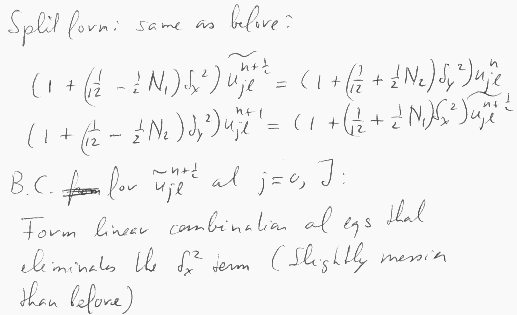 Split form: same as before:
(1 + (1/12 - 1/2 N₁)δₓ²) ũⱼₗⁿ⁺¹ᐟ² = (1 + (1/12 + 1/2 N₂)δᵧ²) uⱼₗⁿ
(1 + (1/12 - 1/2 N₂)δᵧ²) uⱼₗⁿ⁺¹ = (1 + (1/12 + 1/2 N₁)δₓ²) ũⱼₗⁿ⁺¹ᐟ²
B.C. for ũⱼₗⁿ⁺¹ᐟ² at j=0, J:
Form linear combination of eqs that
eliminates the δₓ² term (Slightly messier
than before)